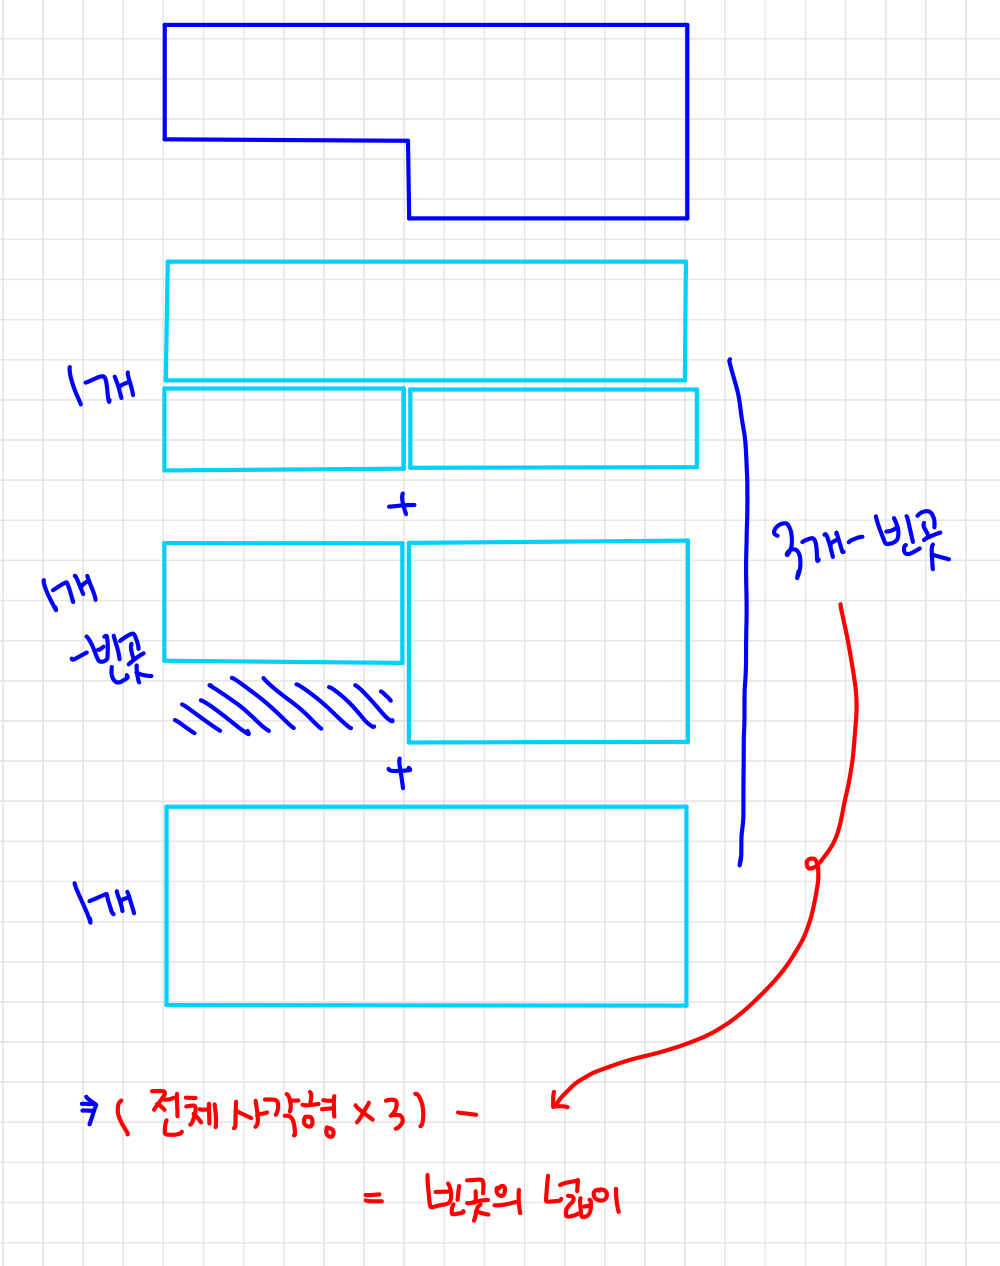 1개
+
1개
-빈곳
3개-빈곳
+
1개
⇒ (전체 사각형 × 3) -
= 빈곳의 넓이